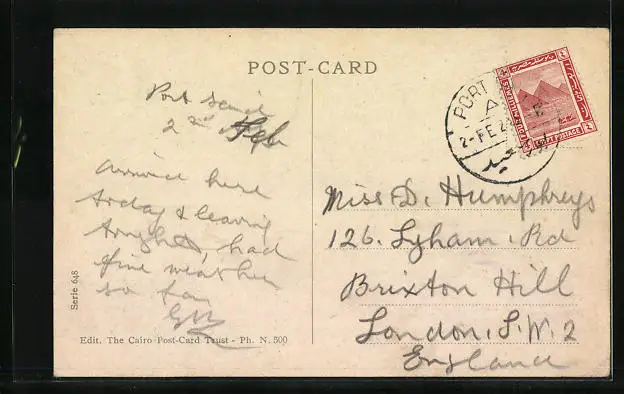 POST-CARD
Port Said
2nd Feb
Arrived here
today & leaving
tonight, had
fine weather
so far
Serie 648
Edit. The Cairo Post-Card Trust - Ph. N. 500
PORT
2-FE 2
Miss D. Humphreys
126. Lyham Rd
Brixton Hill
London. S.W. 2
England